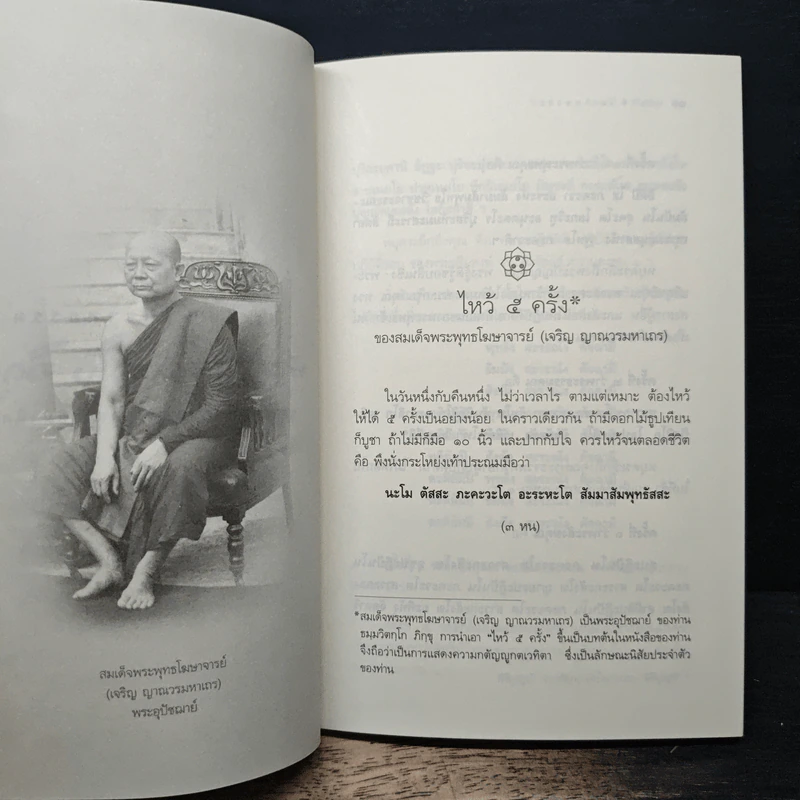 สมเด็จพระพุทธโฆษาจารย์
(เจริญ ญาณวรมหาเถร)
พระอุปัชฌาย์
ไหว้ ๕ ครั้ง*
ของสมเด็จพระพุทธโฆษาจารย์ (เจริญ ญาณวรมหาเถร)
ในวันหนึ่งกับคืนหนึ่ง ไม่ว่าเวลาไร ตามแต่เหมาะ ต้องไหว้
ให้ได้ ๕ ครั้งเป็นอย่างน้อย ในคราวเดียวกัน ถ้ามีดอกไม้ธูปเทียน
ก็บูชา ถ้าไม่มีก็มือ ๑๐ นิ้ว และปากกับใจ ควรไหว้จนตลอดชีวิต
คือ พึงนั่งกระโหย่งเท้าประณมมือว่า
นะโม ตัสสะ ภะคะวะโต อะระหะโต สัมมาสัมพุทธัสสะ
(๓ หน)
*สมเด็จพระพุทธโฆษาจารย์ (เจริญ ญาณวรมหาเถร) เป็นพระอุปัชฌาย์ ของท่าน
ธมฺมวิตกฺโก ภิกฺขุ การนำเอา "ไหว้ ๕ ครั้ง" ขึ้นเป็นบทต้นในหนังสือของท่าน
จึงถือว่าเป็นการแสดงความกตัญญูกตเวทิตา ซึ่งเป็นลักษณะนิสัยประจำตัว
ของท่าน